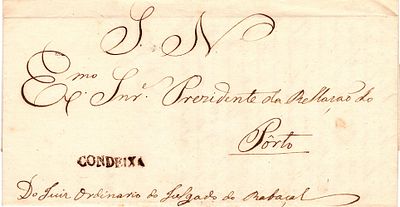 S. N.
Exmo. Snr. Prezidente da Rellação do
Pôrto
CONDEIXA
Do Juiz Ordinario do Julgado do Rabaçal